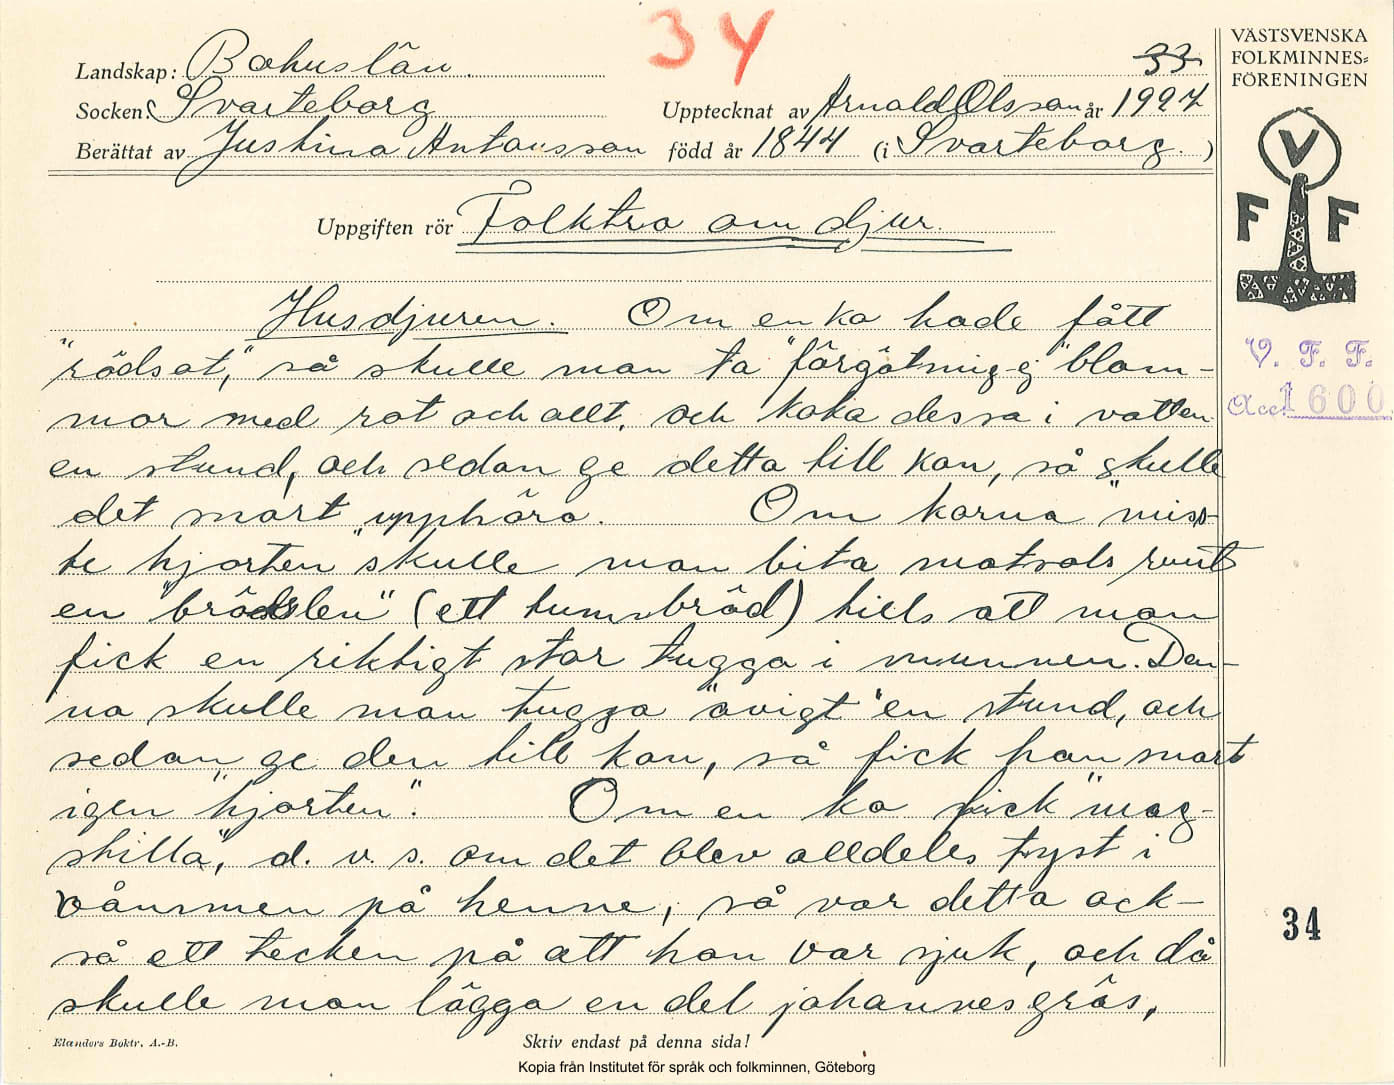 34
Landskap: Bohuslän. 33
Socken: Svarteborg Upptecknat av Arnold Olsson år 1927
Berättat av Justina Antonsson född år 1844 (i Svarteborg.)
Uppgiften rör Folktro om djur.
Husdjuren. Om en ko hade fått
"rödsot," så skulle man ta "förgötmig-ej" blom-
mor med rot och allt, och koka dessa i vatten
en stund, och sedan ge detta till kon, så skulle
det snart upphöra. Om korna "miss-
te hjorten" skulle man bita motsols runt
en "brödslev" (ett tunnbröd) tills att man
fick en riktigt stor tugga i munnen. Den-
na skulle man tugga "avigt" en stund, och
sedan ge den till kon, så fick hon snart
igen "hjorten". Om en ko fick "mag-
stilla", d. v. s. om det blev alldeles tyst i
vånsmen på henne, så var detta ock-
så ett tecken på att hon var sjuk, och då
skulle man lägga en del johannesgräs,
Elanders Boktr. A.-B. Skriv endast på denna sida!
Kopia från Institutet för språk och folkminnen, Göteborg
VÄSTSVENSKA
FOLKMINNES=
FÖRENINGEN
V
F F
V. F. F.
Acc. 1600
34